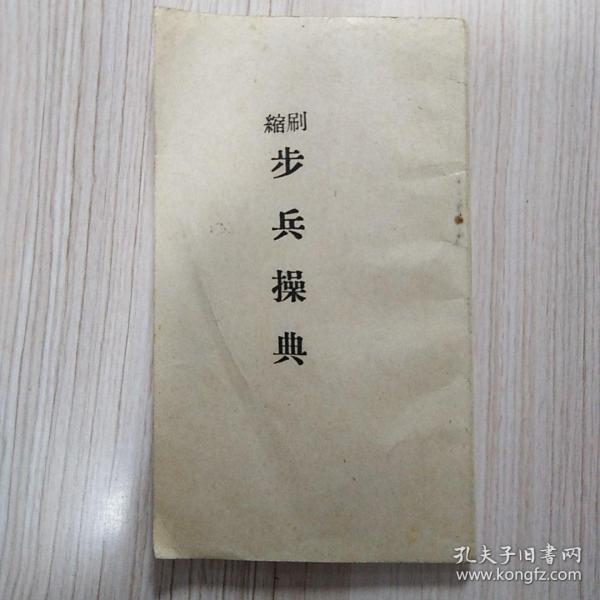 縮刷
步兵操典
孔夫子旧書网
www.kongfz.com